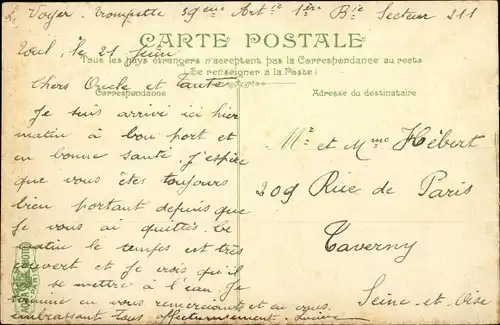 L. Voyer. Trompette 39eme Artie 1ère Bie Secteur 211
CARTE POSTALE
Tous les pays étrangers n'acceptent pas la Correspondance au recto
(Se renseigner à la Poste)
Correspondance
Toul, le 21 Juin
Chers Oncle et tante
Je suis arrivé ici hier
matin à bon port et
en bonne santé. J'espère
que vous êtes toujours
bien portant depuis que
je vous ai quittés. Ce
matin le temps est très
couvert et je crois qu'il
va se mettre à l'eau. Je
termine en vous remerciant et en vous
embrassant tous affectueusement. Lucien
Adresse du destinataire
Mr et Mme Hébert
209 Rue de Paris
Taverny
Seine-et-Oise